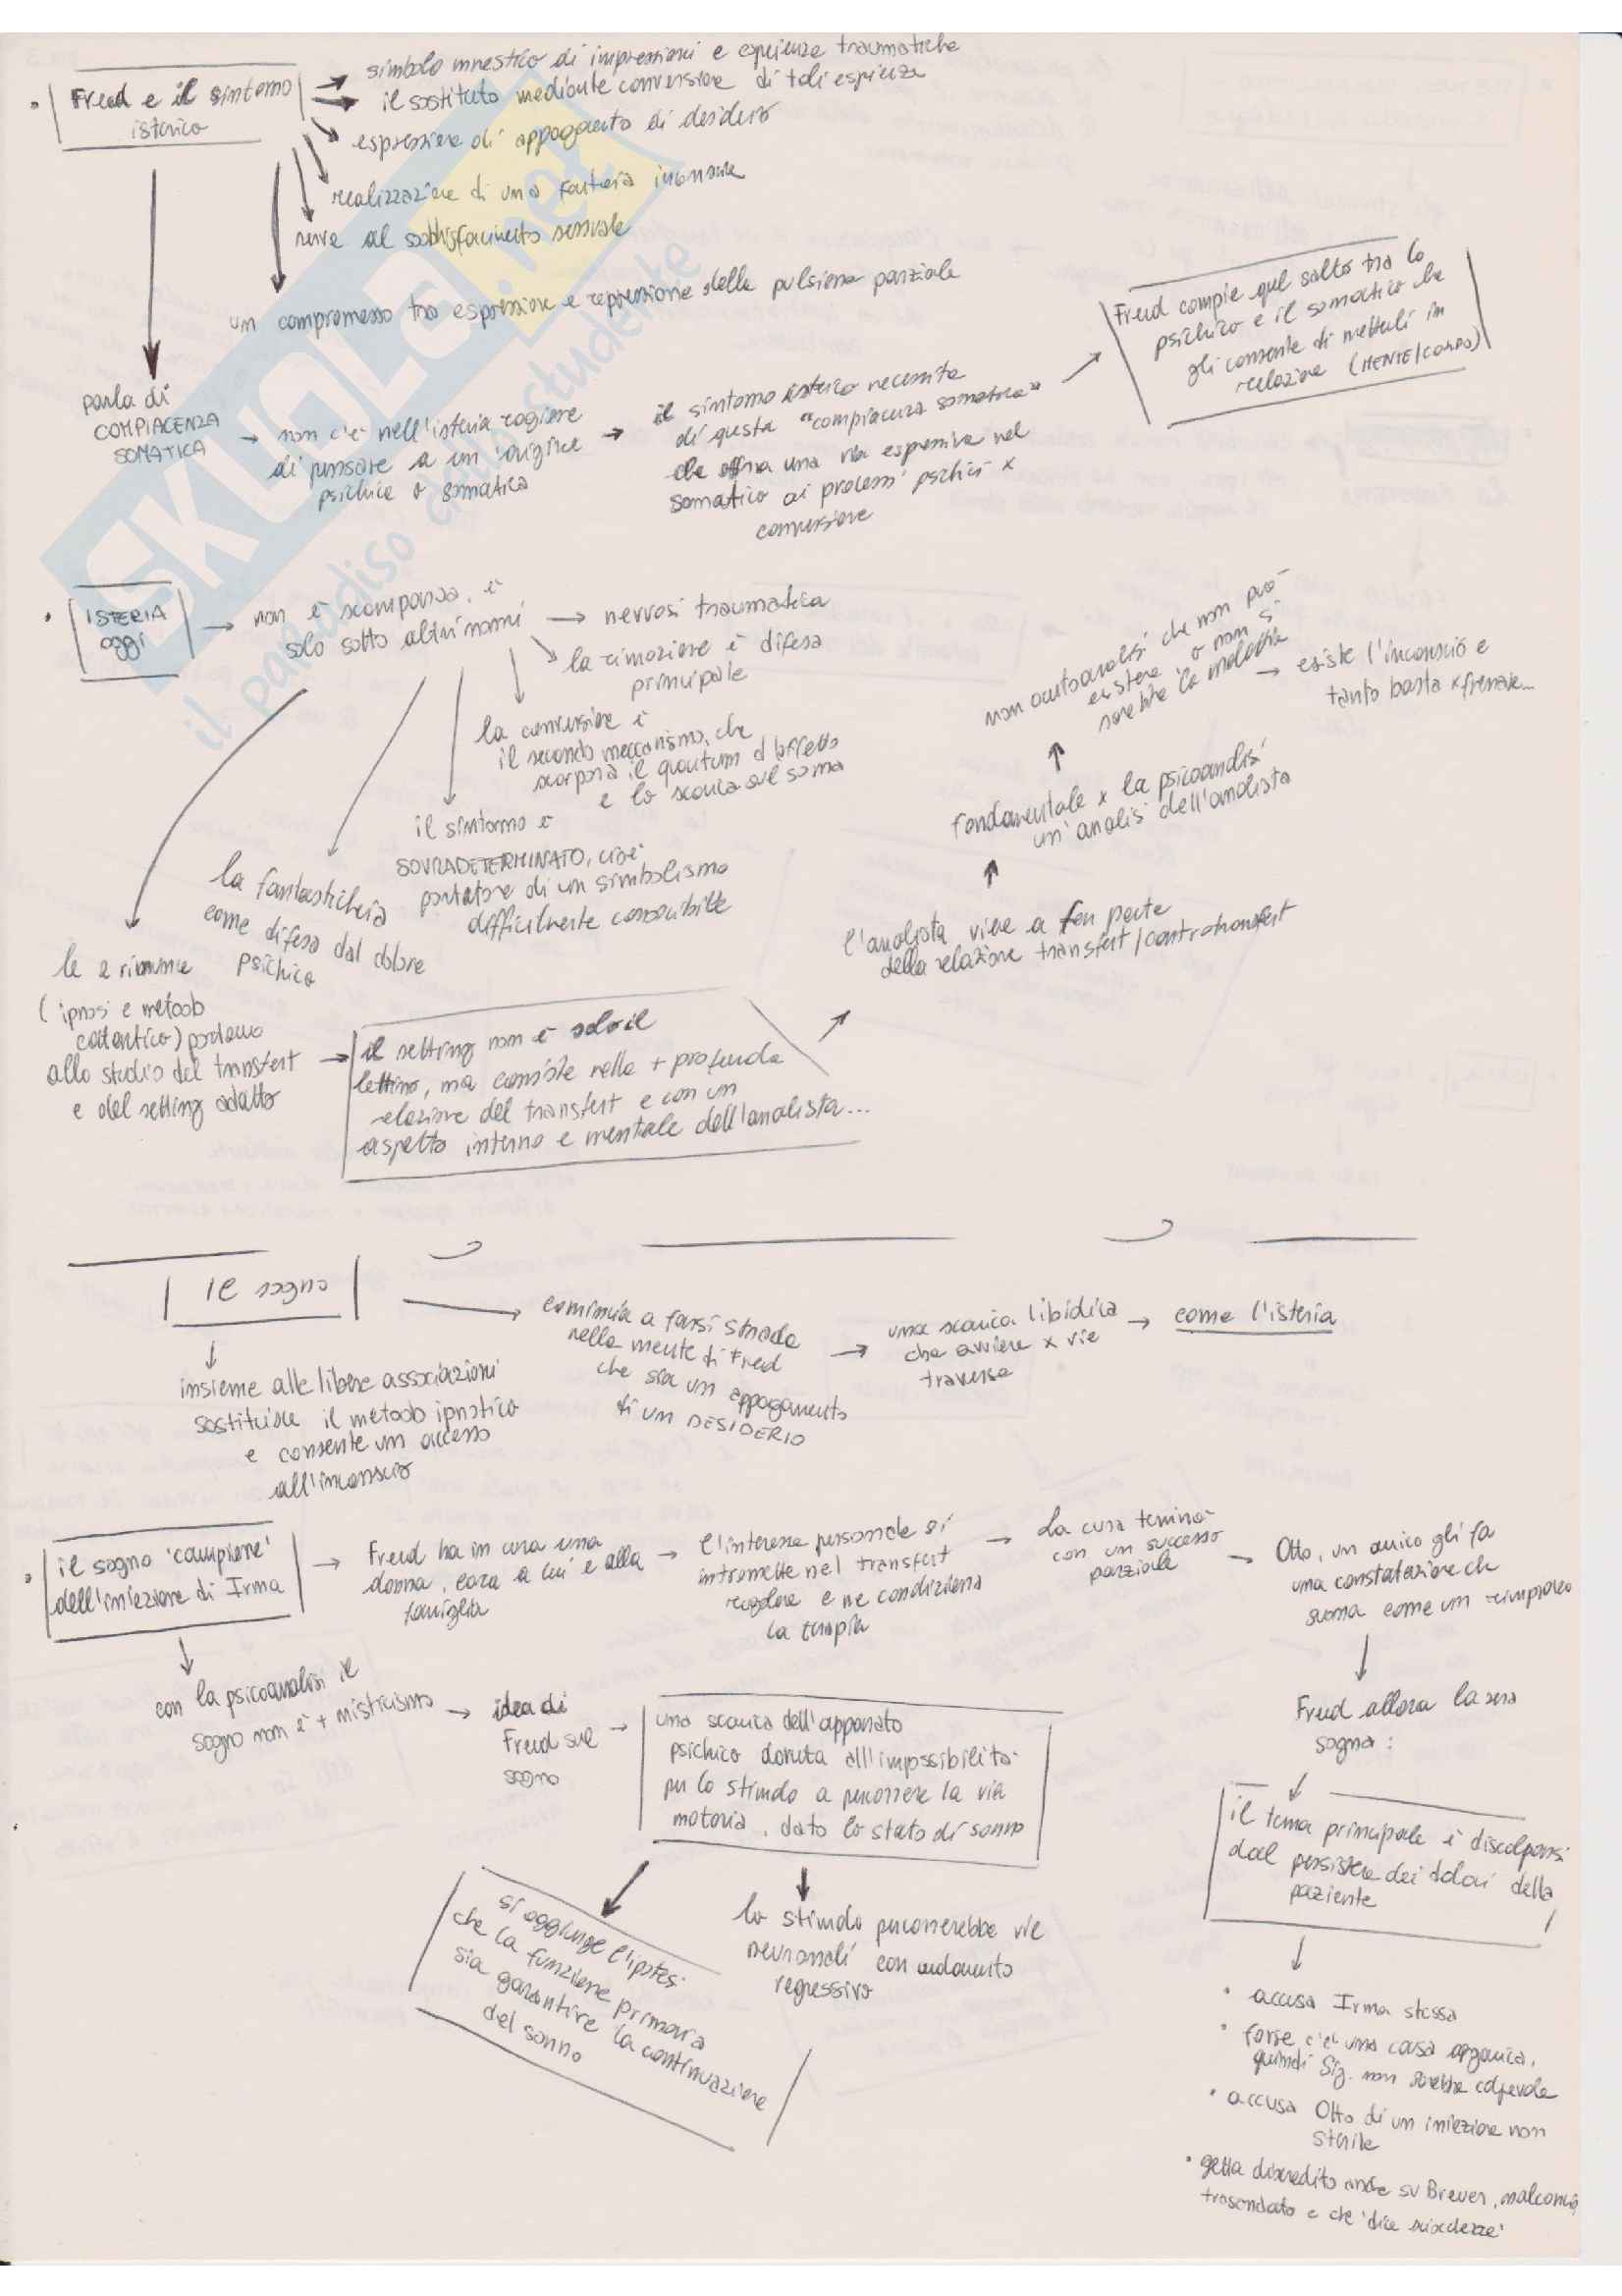 Freud e il sintomo
isterico
simbolo mnestico di impressioni e esperienze traumatiche
il sostituto mediante conversione di tali esperienze
espressione di appagamento di desiderio
realizzazione di una fantasia inconscia
serve al soddisfacimento sessuale
un compromesso tra espressione e repressione della pulsione parziale
parla di
COMPIACENZA
SOMATICA
non c'è nell'isteria ragione
di pensare a un'origine
psichica o somatica
il sintomo isterico necessita
di questa "compiacenza somatica"
che offra una via espressiva nel
somatico ai processi psichici x
conversione
Freud compie quel salto tra lo
psichico e il somatico che
gli consente di metterli in
relazione (MENTE/CORPO)
ISTERIA
oggi
non è scomparsa, è
solo sotto altri nomi
nevrosi traumatica
la rimozione è difesa
principale
la conversione è
il secondo meccanismo, che
scorpora il quantum d'affetto
e lo scarica sul soma
il sintomo è
SOVRADETERMINATO, cioè
portatore di un simbolismo
difficilmente conoscibile
la fantasticheria
come difesa dal dolore
psichico
le 2 rinunce
(ipnosi e metodo
catartico) portano
allo studio del transfert
e del setting adatto
il setting non è solo il
lettino, ma consiste nella + profonda
relazione del transfert e con un
aspetto interno e mentale dell'analista...
l'analista viene a far parte
della relazione transfert/controtransfert
fondamentale x la psicoanalisi
un'analisi dell'analista
non autoanalisi che non può
esistere o non si
sarebbe la malattia
esiste l'inconscio e
tanto basta x frenare...
Il sogno
comincia a farsi strada
nella mente di Freud
che sia un appagamento
di un DESIDERIO
una scarica libidica
che avviene x vie
traverse
come l'isteria
insieme alle libere associazioni
sostituisce il metodo ipnotico
e consente un accesso
all'inconscio
il sogno 'campione'
dell'iniezione di Irma
Freud ha in cura una
donna, cara a lui e alla
famiglia
l'interesse personale si
intromette nel transfert
regolare e ne condiziona
la terapia
La cura termina
con un successo
parziale
Otto, un amico gli fa
una constatazione che
suona come un rimprovero
Freud allora la sera
sogna:
il tema principale è discolparsi
dal persistere dei dolori della
paziente
• accusa Irma stessa
• forse c'è una causa organica,
quindi Sig. non sarebbe colpevole
• accusa Otto di un iniezione non
sterile
• getta discredito anche su Breuer, malconcio,
trasandato e che 'dice sciocchezze'
con la psicoanalisi il
sogno non è + misticismo
idea di
Freud sul
sogno
una scarica dell'apparato
psichico dovuta all'impossibilità
per lo stimolo a percorrere la via
motoria, dato lo stato di sonno
si aggiunge l'ipotesi
che la funzione primaria
sia garantire la continuazione
del sonno
lo stimolo percorrerebbe vie
neuronali con andamento
regressivo
SKUOLA.net
il paradiso dello studente